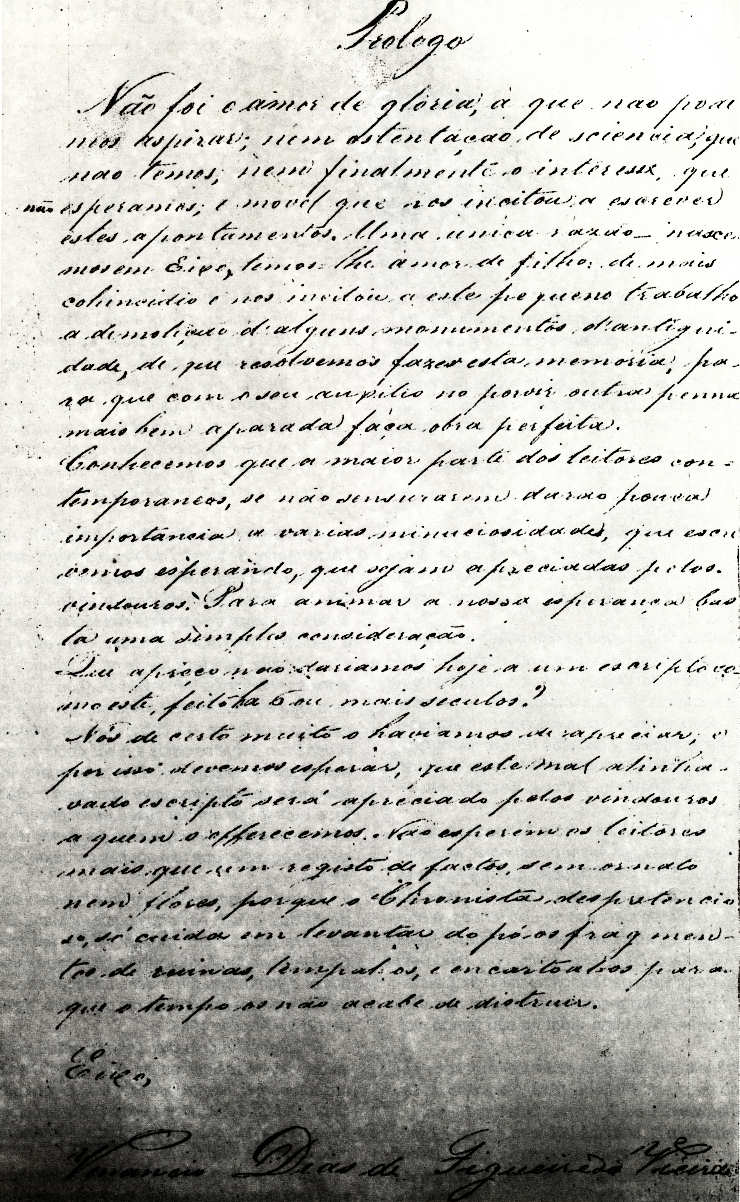 Prologo
Não foi o amor de gloria, a que não pode
mos aspirar; nem ostentação de sciencia, que
não temos; nem finalmente o interesse, que
não esperamos; o movel que nos incitou a escrever
estes apontamentos. Uma unica razão – nasce
mos em Eixo, temos-lhe amor de filho: de mais
cohincidio e nos incitou a este pequeno trabalho
a demolição d'alguns monumentos d'antigui-
dade, de que resolvemos fazer esta memoria, pa-
ra que com o seu auxilio no porvir outra penna
mais bem aparada faça obra perfeita.
Conhecemos que a maior parte dos leitores con-
temporaneos, se não sensurarem darão pouca
importancia a varias minuciosidades, que escre
vemos esperando, que sejam apreciadas pelos
vindouros. Para animar a nossa esperança bas
ta uma simples consideração.
Que apreço não dariamos hoje a um escripto co-
mo este, feito ha 6 ou mais seculos?
Nós de certo muito o haviamos de apreciar, e
por isso devemos esperar, que este mal alinha-
vado escripto será apreciado pelos vindouros
a quem o offerecemos. Não esperem os leitores
mais que um registo de factos, sem ornato
nem flores, porque o Chronista despretencio
so, só cuida em levantar do pó os fragmen-
tos de ruinas, e encartoal-os para
que o tempo os não acabe de distruir.
Eixo,
Venancio Dias de Figueiredo Vieira